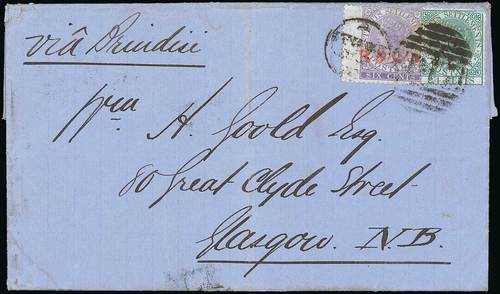 viâ Brindisi
Wm H. Goold Esq.
80 Great Clyde Street
Glasgow. N.B.
SIX CENTS